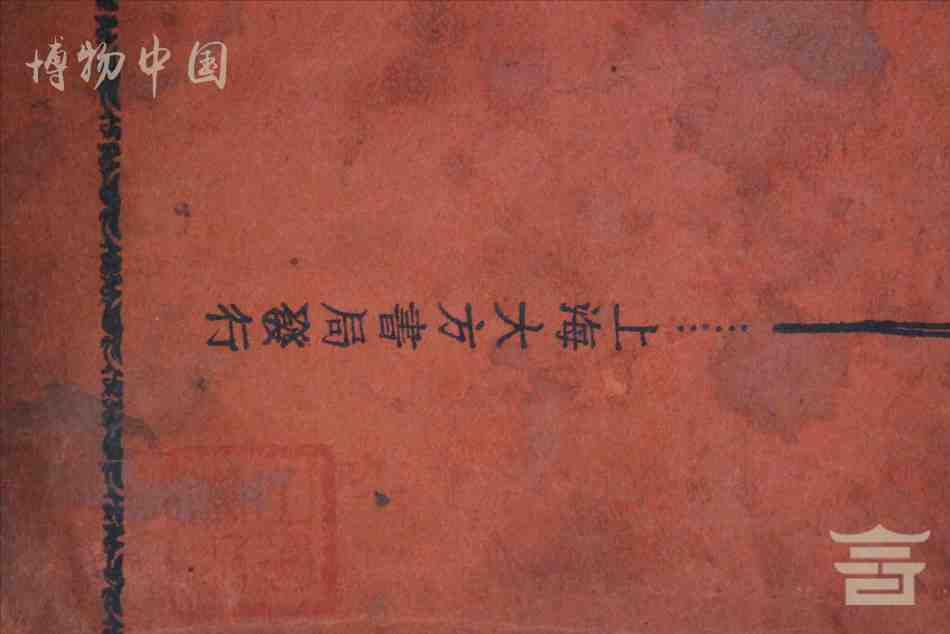 博物中国
上海大方書局發行